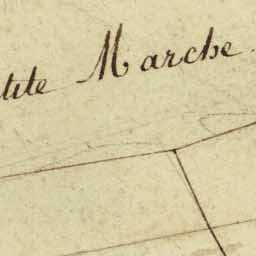 tite Marche.